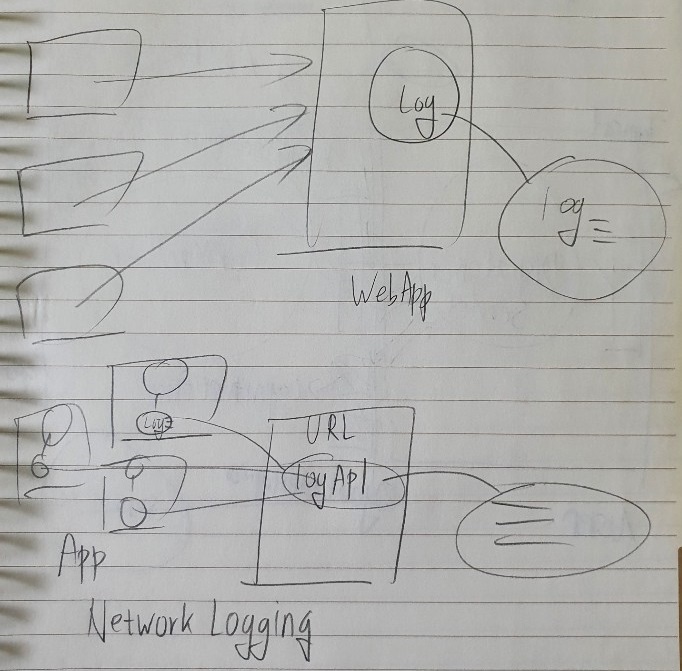 Log
log
WebApp
Log
URL
logApI
App
Network Logging